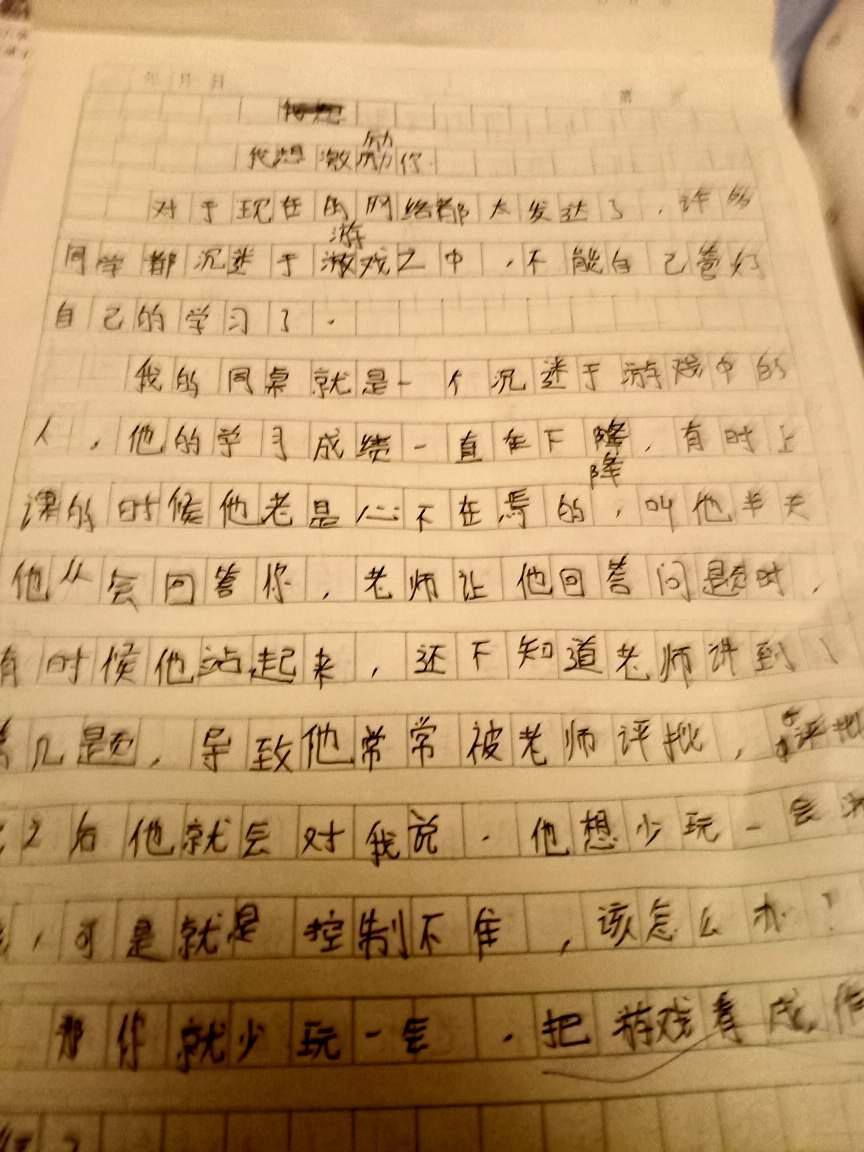 年 月 日
第 页
我想激励你
励
对于现在的网络都太发达了，许多
游
同学都沉迷于游戏之中，不能自己管好
自己的学习了。
我的同桌就是一个沉迷于游戏中的
人，他的学习成绩一直在下降，有时上
降
课的时候他老是心不在焉的，叫他半天
他从会回答你，老师让他回答问题时，
有时候他站起来，还不知道老师讲到了
第几题，导致他常常被老师评批，评批
之后他就会对我说。他想少玩一会游
，可是就是控制不住，该怎么办？
那你就少玩一会，把游戏看成作